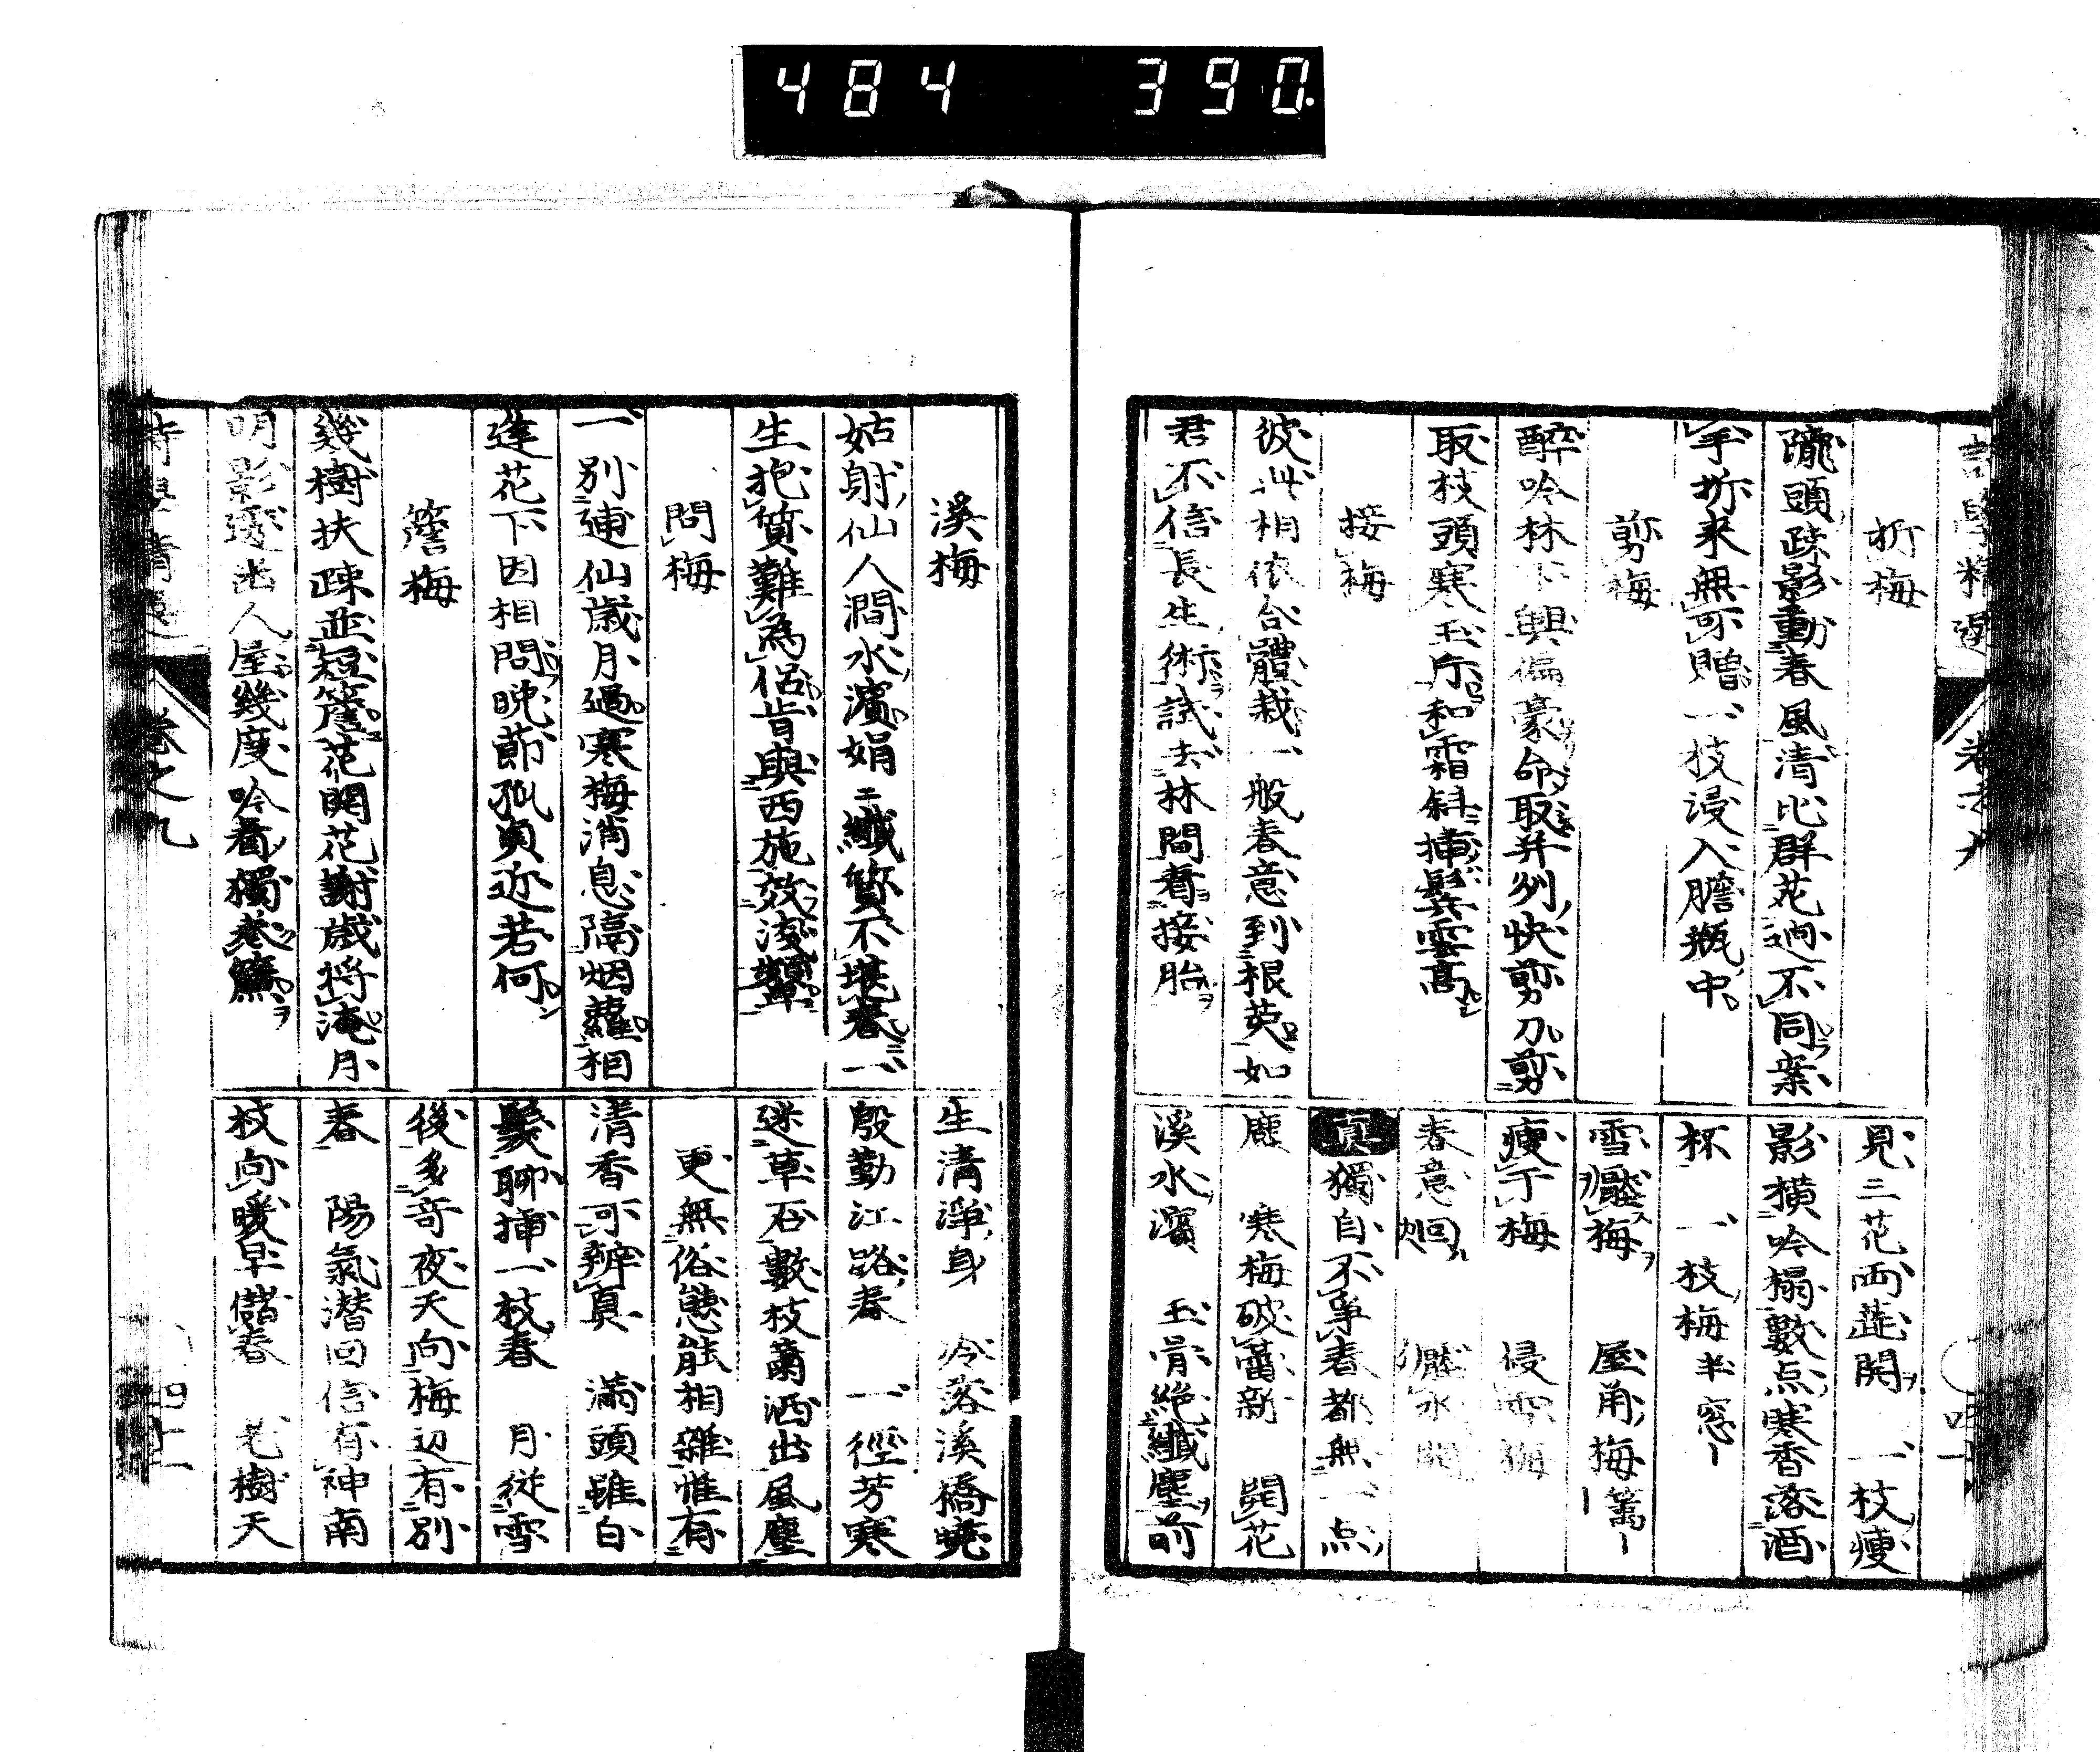 484 390
折梅
隴頭疎影動春風清比群花迥不同案
手折来無可贈一枝浸入膽瓶中
剪梅
醉吟林下興偏豪命取并州快剪刀剪
取枝頭寒玉片和霜斜挿鬂雲高
接梅
彼此相依合體栽一般春意到根荄如
君不信長生術試去林間看接胎
見二花両蕋開 一枝瘦
影横吟榻数点寒香落酒
杯 一枝梅半窓
雪壓梅 屋角梅篱
瘦于梅 侵雪梅
春意
真 獨自不争春都無一点
塵 寒梅破蕾新 閙花
溪水濱 玉骨絶纖塵前
溪梅
姑射仙人澗水濱娟〻纖質不堪春一
生抱質難為侣肯與西施效淺顰
問梅
一別逋仙歳月過寒梅消息隔烟蘿相
逢花下因相問晩節孤貞近若何
簷梅
幾樹扶疎並短簷花開花謝歳将淹月
明影逐出人屋幾度吟看獨巻簾
生清淨身 冷落溪橋曉
殷勤江路春 一徑芳寒
迷草石數枝蕭洒出風塵
更無俗態能相雑惟有
清香可辨真 满頭雖白
髪聊挿一枝春 月従雪
後多奇夜天向梅辺有別
春 陽氣潜回信有神南
枝向暖早儲春 老樹天
卷之九
四十二